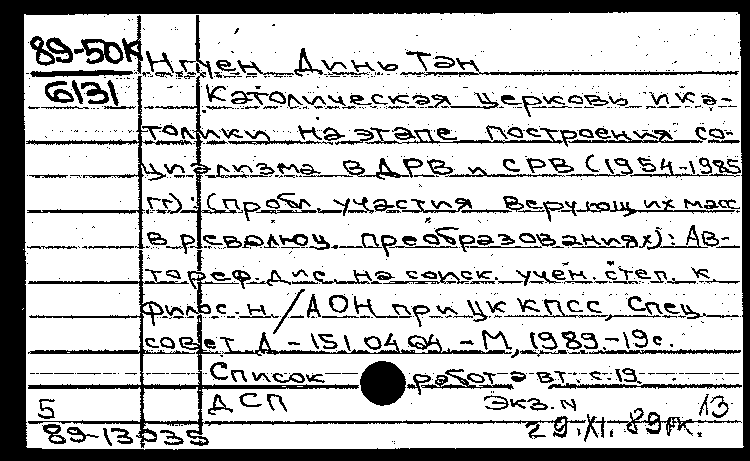 89-50К Нгуен Динь Тэн
6131 Католическая церковь и ка-
толики на этапе построения со-
циализма в ДРВ и СРВ (1954-1985
гг): (пробл. участия верующих масс
в революц. преобразованиях): Ав-
тореф. дис. на соиск. учен. степ. к.
филос. н. / АОН при ЦК КПСС, Спец.
совет Д-151.04.04. - М, 1989.-19с.
Список работ авт. с. 19
5 ДСП Экз. N 13
89-13035 29.XI.89